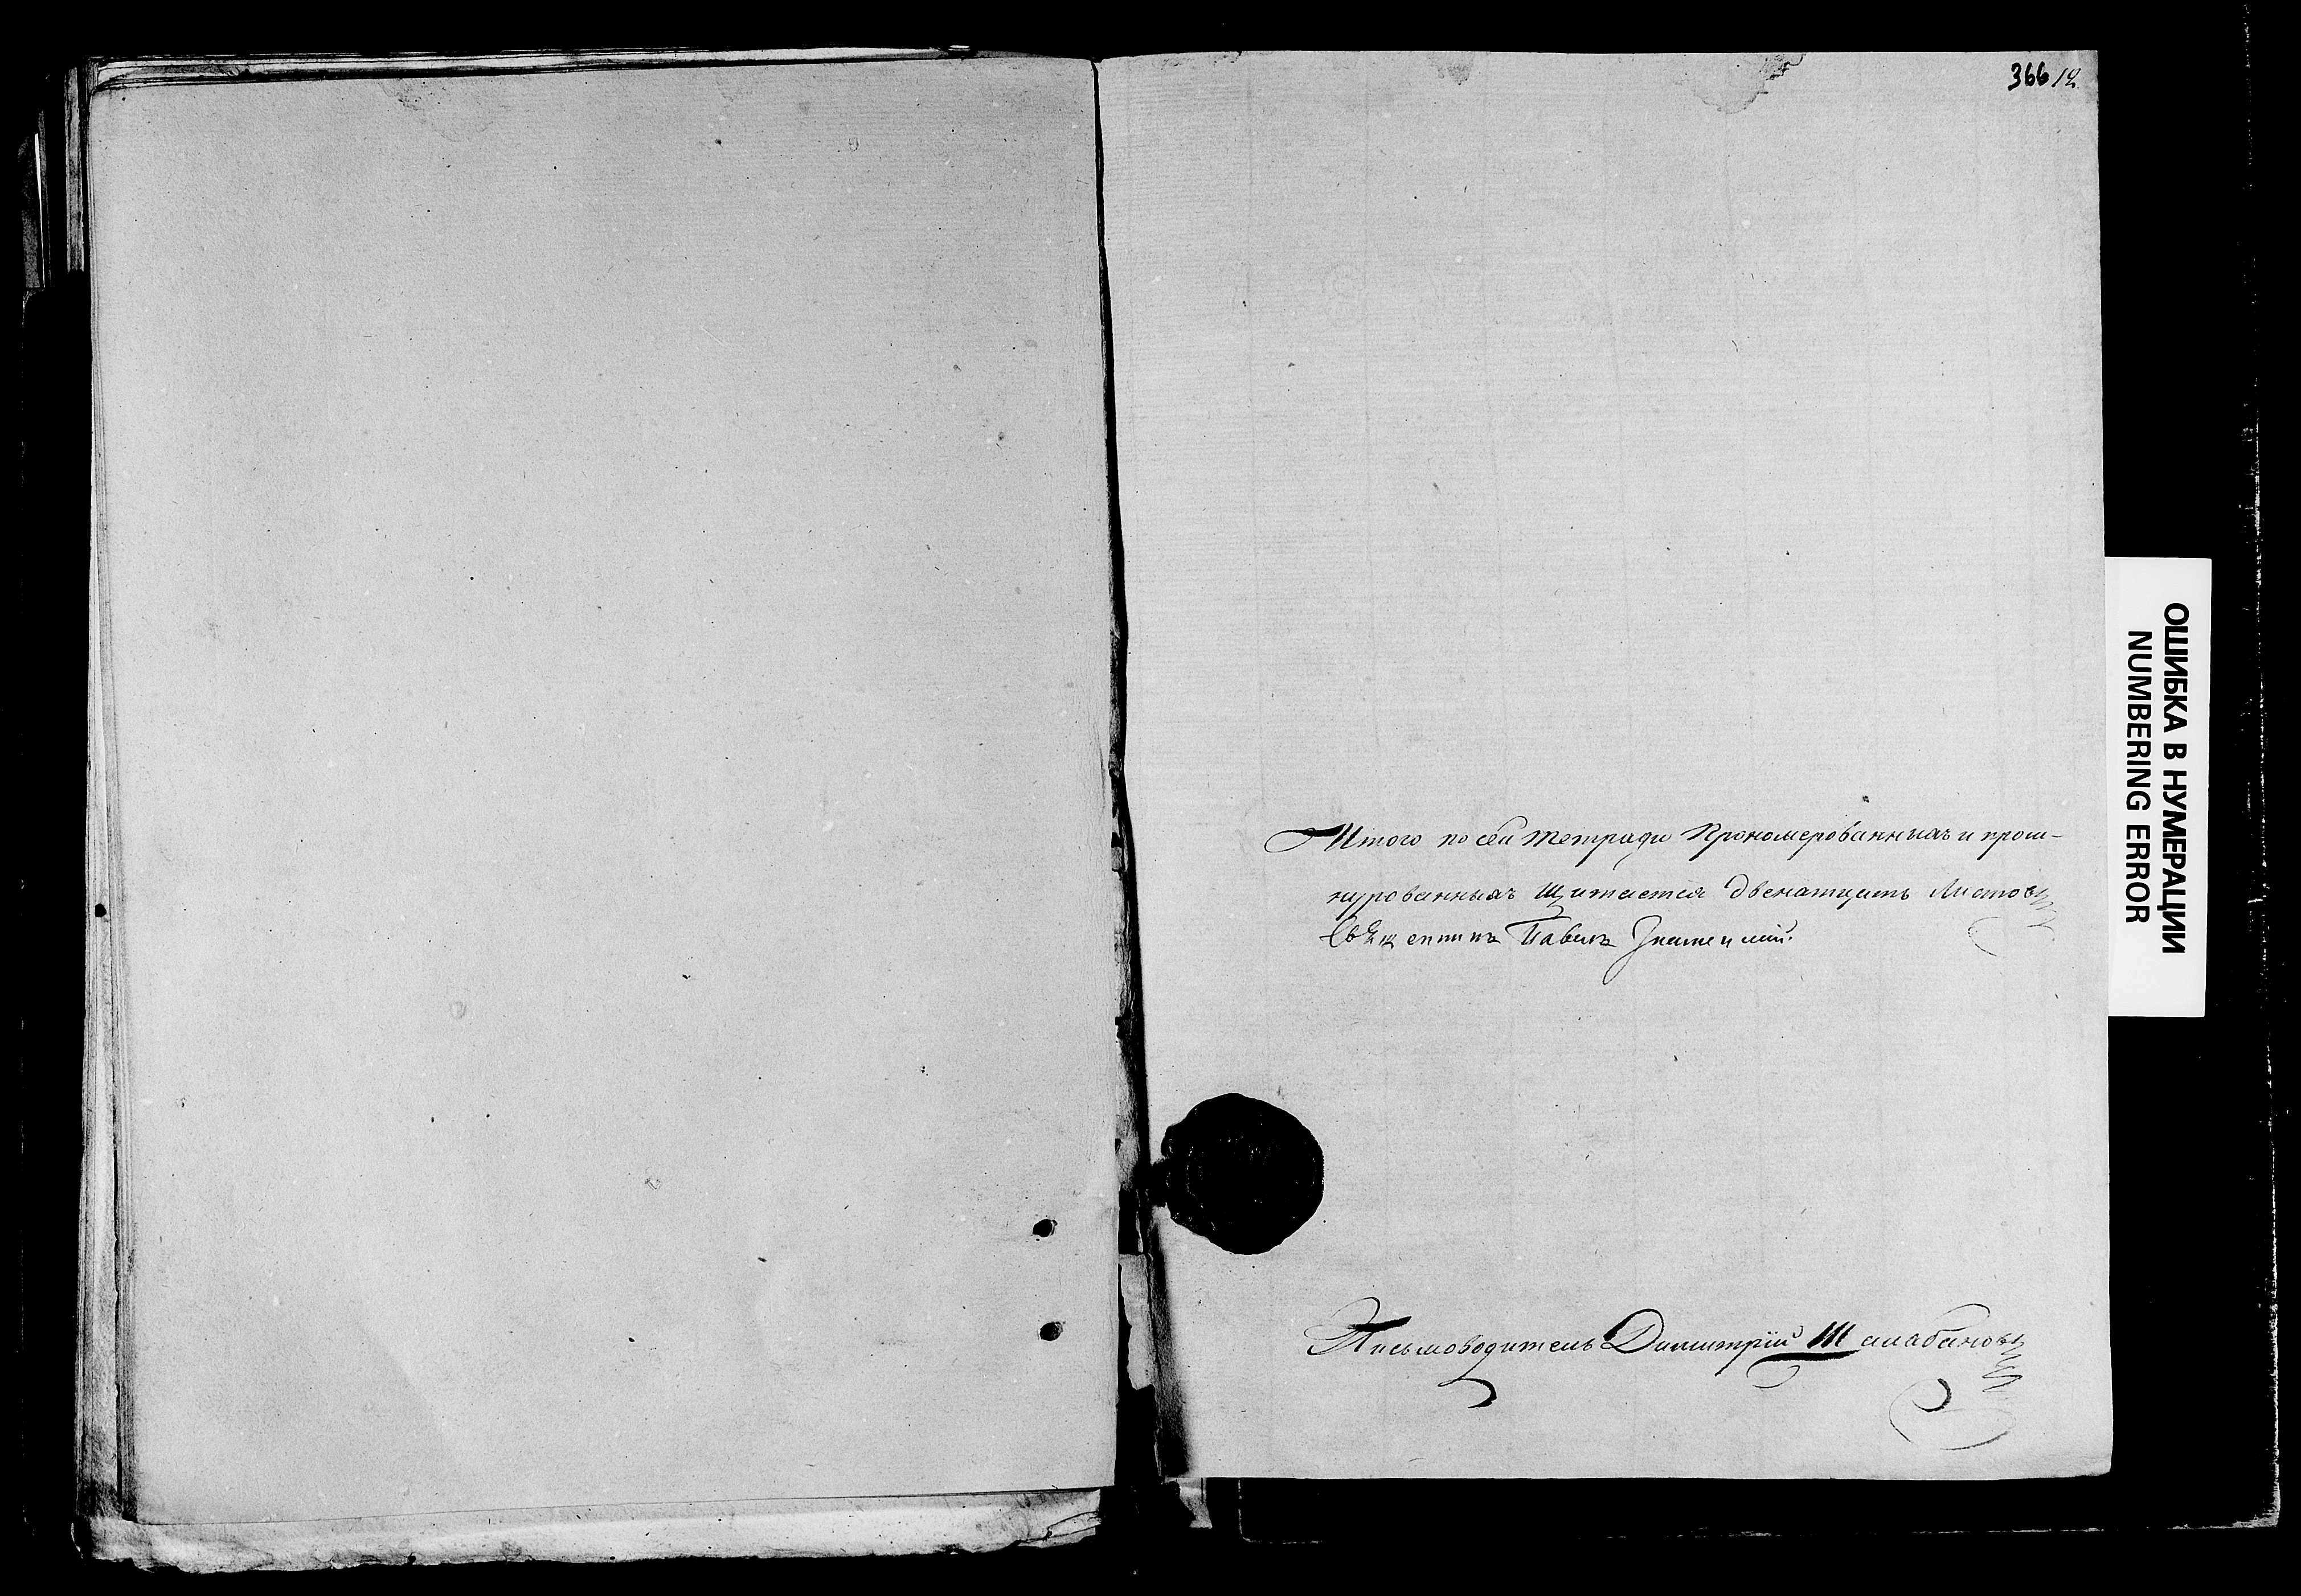 366 12
Итого по сей тетради Прономерованныхъ и прош-
нурованныхъ щитается двенатцать Листовъ
Священникъ Павелъ
Письмоводитель Димитрій Шалабановъ
ОШИБКА В НУМЕРАЦИИ
NUMBERING ERROR